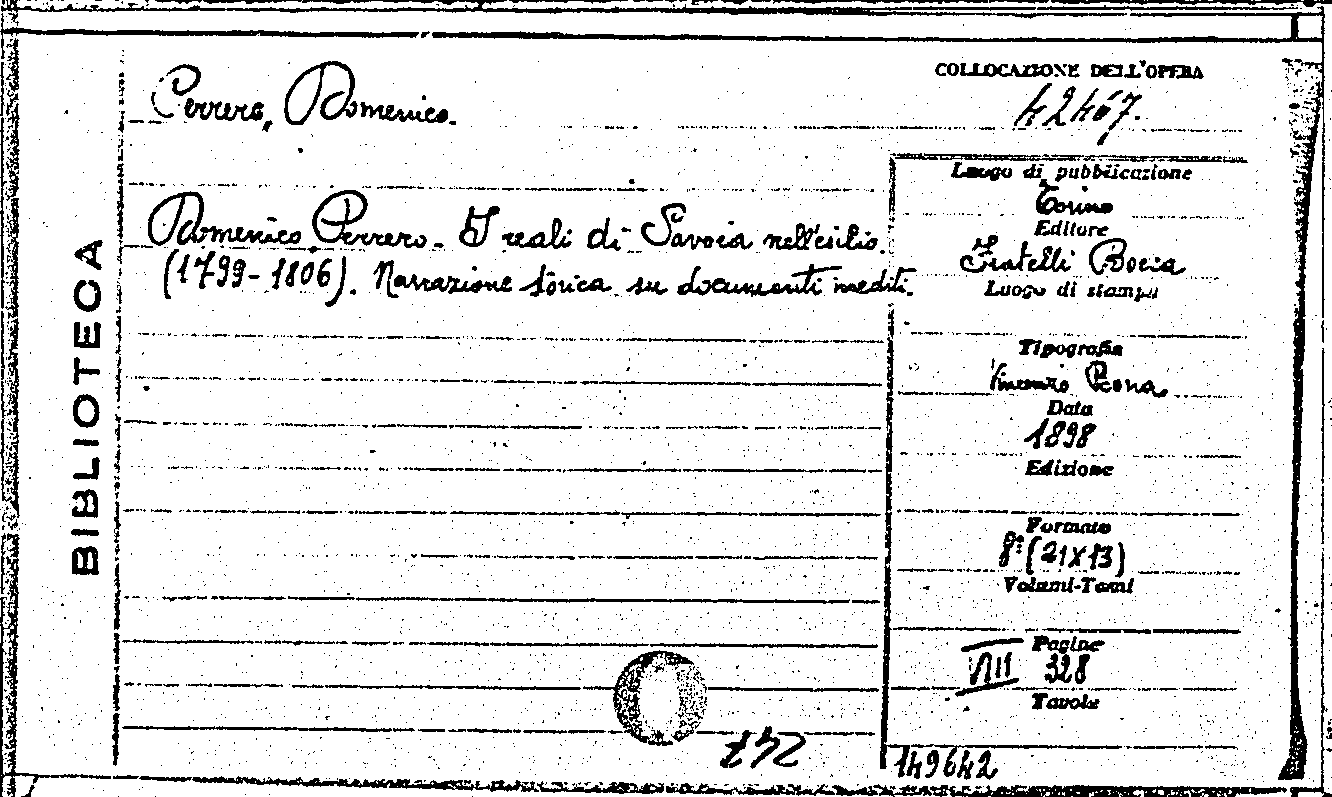 BIBLIOTECA
Perrero, Domenico.
COLLOCAZIONE DELL'OPERA
42467.
Domenico Perrero - I reali di Savoia nell'esilio.
(1799-1806). Narrazione storica su documenti inediti.
Luogo di pubblicazione
Torino
Editore
Fratelli Bocca
Luogo di stampa
Tipografia
Vincenzo Bona
Data
1898
Edizione
Formato
8º (21X13)
Volumi-Tomi
Pagine
VIII 328
Tavole
149642